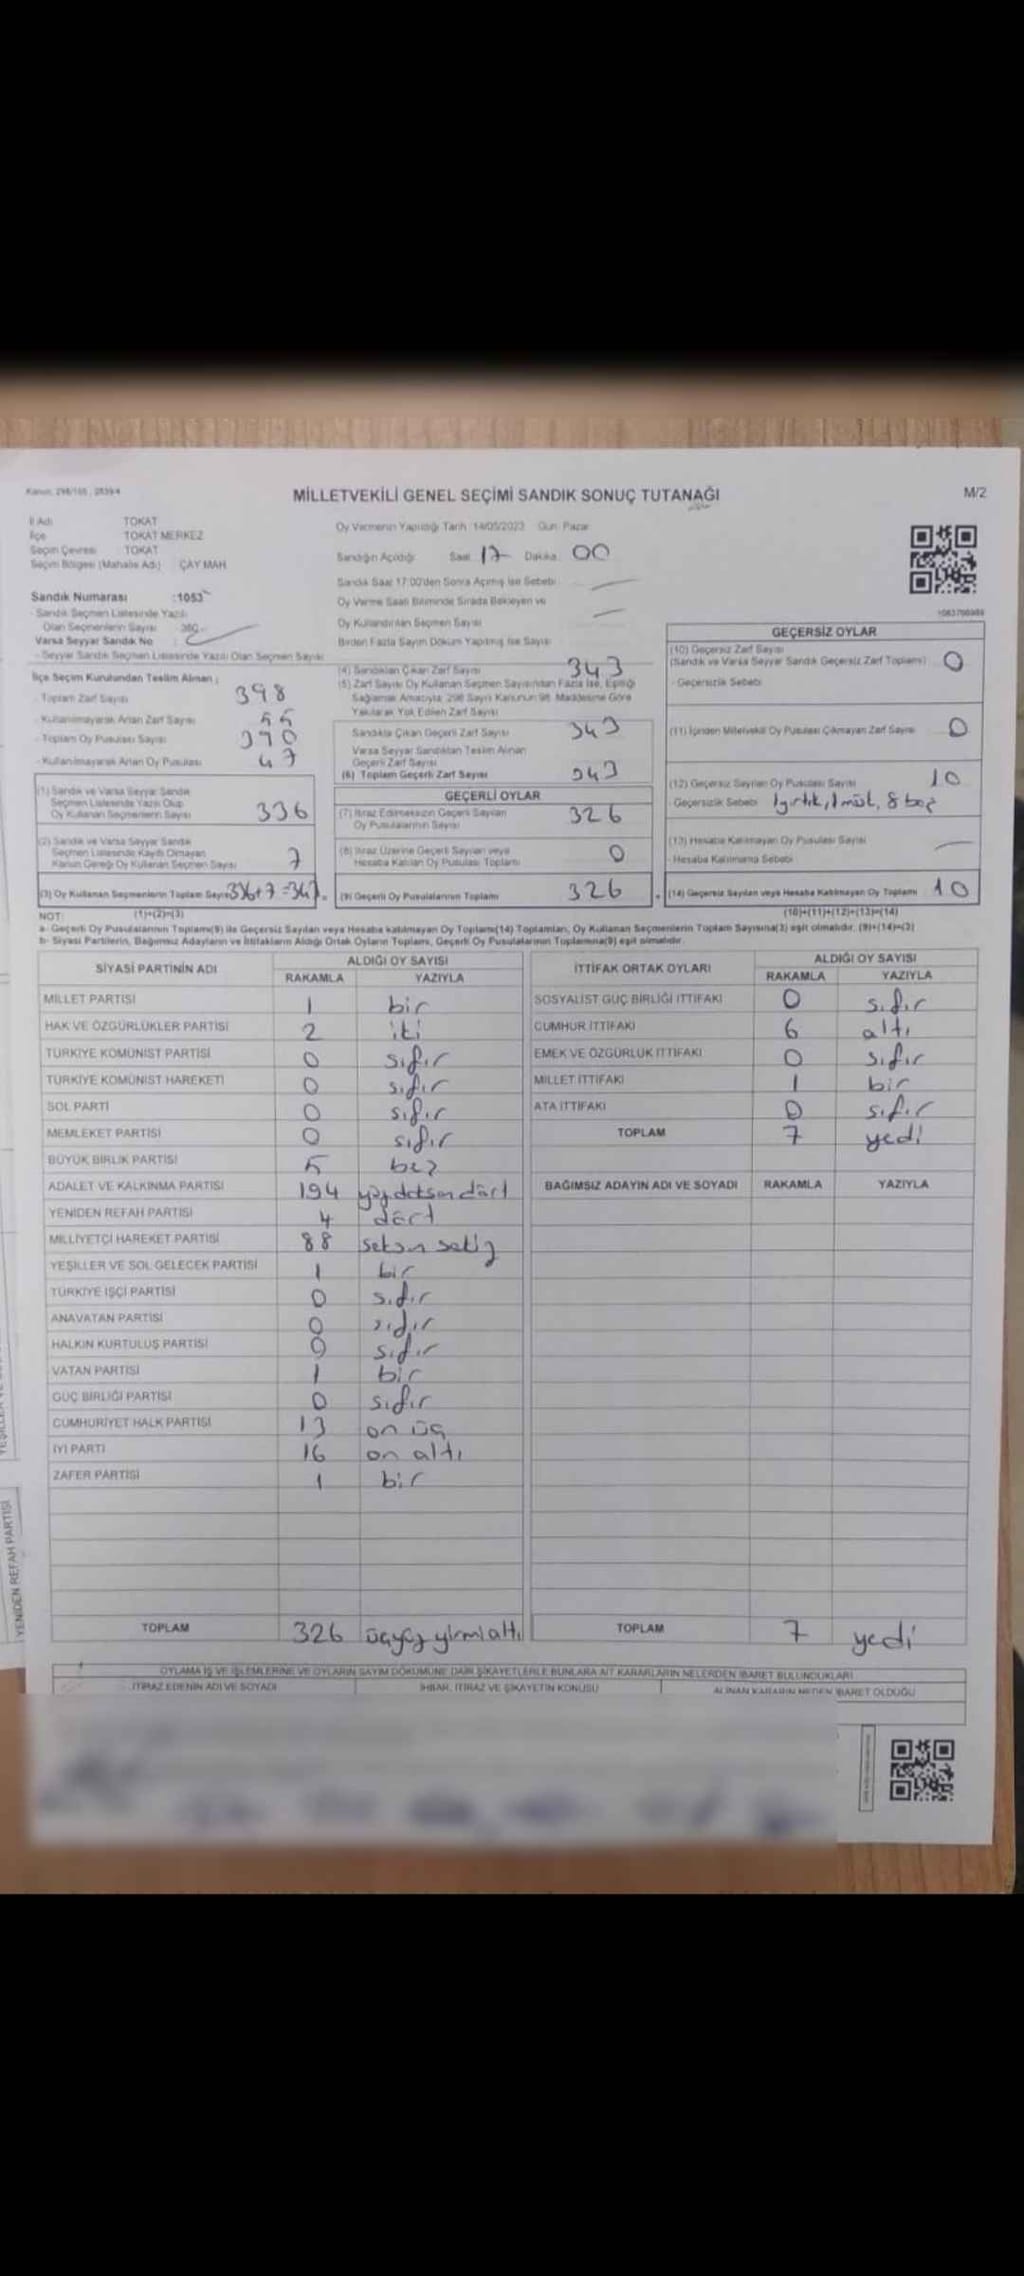 Kanun: 298/105 , 2839/4
MİLLETVEKİLİ GENEL SEÇİMİ SANDIK SONUÇ TUTANAĞI
M/2
İl Adı TOKAT
İlçe TOKAT MERKEZ
Seçim Çevresi TOKAT
Seçim Bölgesi (Mahalle Adı) : ÇAY MAH.
Oy Vermenin Yapıldığı Tarih :14/05/2023 Gün: Pazar
Sandığın Açıldığı Saat 17 Dakika 00
Sandık Saat 17:00'den Sonra Açılmış İse Sebebi
Oy Verme Saati Bitiminde Sırada Bekleyen ve
Oy Kullandırılan Seçmen Sayısı
Birden Fazla Sayım Döküm Yapılmış İse Sayısı
Sandık Numarası :1053
- Sandık Seçmen Listesinde Yazılı
Olan Seçmenlerin Sayısı : 380
Varsa Seyyar Sandık No :
- Seyyar Sandık Seçmen Listesinde Yazılı Olan Seçmen Sayısı
İlçe Seçim Kurulundan Teslim Alınan ;
- Toplam Zarf Sayısı 398
- Kullanılmayarak Artan Zarf Sayısı 55
- Toplam Oy Pusulası Sayısı 390
- Kullanılmayarak Artan Oy Pusulası 47
(1) Sandık ve Varsa Seyyar Sandık
Seçmen Listesinde Yazılı Olup
Oy Kullanan Seçmenlerin Sayısı 336
(2) Sandık ve Varsa Seyyar Sandık
Seçmen Listesinde Kayıtlı Olmayan
Kanun Gereği Oy Kullanan Seçmen Sayısı 7
(3) Oy Kullanan Seçmenlerin Toplam Sayısı 336+7=343
(1)+(2)=(3)
(4) Sandıktan Çıkan Zarf Sayısı 343
(5) Zarf Sayısı Oy Kullanan Seçmen Sayısından Fazla İse, Eşitliği
Sağlamak Amacıyla 298 Sayılı Kanunun 98. Maddesine Göre
Yakılarak Yok Edilen Zarf Sayısı
Sandıkta Çıkan Geçerli Zarf Sayısı 343
Varsa Seyyar Sandıktan Teslim Alınan
Geçerli Zarf Sayısı
(6) Toplam Geçerli Zarf Sayısı 343
GEÇERLİ OYLAR
(7) İtiraz Edilmeksizin Geçerli Sayılan
Oy Pusulalarının Sayısı 326
(8) İtiraz Üzerine Geçerli Sayılan veya
Hesaba Katılan Oy Pusulası Toplamı 0
(9) Geçerli Oy Pusulalarının Toplamı 326
GEÇERSİZ OYLAR
(10) Geçersiz Zarf Sayısı
(Sandık ve Varsa Seyyar Sandık Geçersiz Zarf Toplamı) 0
- Geçersizlik Sebebi
(11) İçinden Milletvekili Oy Pusulası Çıkmayan Zarf Sayısı 0
(12) Geçersiz Sayılan Oy Pusulası Sayısı 10
- Geçersizlik Sebebi 1 yırtık, 1 müst, 8 boş
(13) Hesaba Katılmayan Oy Pusulası Sayısı
- Hesaba Katılmama Sebebi
(14) Geçersiz Sayılan veya Hesaba Katılmayan Oy Toplamı 10
(10)+(11)+(12)+(13)=(14)
NOT:
a- Geçerli Oy Pusulalarının Toplamı(9) ile Geçersiz Sayılan veya Hesaba katılmayan Oy Toplamı(14) Toplamları, Oy Kullanan Seçmenlerin Toplam Sayısına(3) eşit olmalıdır. (9)+(14)=(3)
b- Siyasi Partilerin, Bağımsız Adayların ve İttifakların Aldığı Ortak Oyların Toplamı, Geçerli Oy Pusulalarının Toplamına(9) eşit olmalıdır.
SİYASİ PARTİNİN ADI ALDIĞI OY SAYISI
RAKAMLA YAZIYLA
MİLLET PARTİSİ 1 bir
HAK VE ÖZGÜRLÜKLER PARTİSİ 2 iki
TÜRKİYE KOMÜNİST PARTİSİ 0 sıfır
TÜRKİYE KOMÜNİST HAREKETİ 0 sıfır
SOL PARTİ 0 sıfır
MEMLEKET PARTİSİ 0 sıfır
BÜYÜK BİRLİK PARTİSİ 5 beş
ADALET VE KALKINMA PARTİSİ 194 yüzdoksan dört
YENİDEN REFAH PARTİSİ 4 dört
MİLLİYETÇİ HAREKET PARTİSİ 88 seksen sekiz
YEŞİLLER VE SOL GELECEK PARTİSİ 1 bir
TÜRKİYE İŞÇİ PARTİSİ 0 sıfır
ANAVATAN PARTİSİ 0 sıfır
HALKIN KURTULUŞ PARTİSİ 0 sıfır
VATAN PARTİSİ 1 bir
GÜÇ BİRLİĞİ PARTİSİ 0 sıfır
CUMHURİYET HALK PARTİSİ 13 on üç
İYİ PARTİ 16 on altı
ZAFER PARTİSİ 1 bir
TOPLAM 326 üçyüz yirmialtı
İTTİFAK ORTAK OYLARI ALDIĞI OY SAYISI
RAKAMLA YAZIYLA
SOSYALİST GÜÇ BİRLİĞİ İTTİFAKI 0 sıfır
CUMHUR İTTİFAKI 6 altı
EMEK VE ÖZGÜRLÜK İTTİFAKI 0 sıfır
MİLLET İTTİFAKI 1 bir
ATA İTTİFAKI 0 sıfır
TOPLAM 7 yedi
BAĞIMSIZ ADAYIN ADI VE SOYADI RAKAMLA YAZIYLA
TOPLAM 7 yedi
OYLAMA İŞ VE İŞLEMLERİNE VE OYLARIN SAYIM DÖKÜMÜNE DAİR ŞİKAYETLERLE BUNLARA AİT KARARLARIN NELERDEN İBARET BULUNDUKLARI
İTİRAZ EDENİN ADI VE SOYADI İHBAR, İTİRAZ VE ŞİKAYETİN KONUSU ALINAN KARARIN NEDEN İBARET OLDUĞU
YENİDEN REFAH PARTİSİ